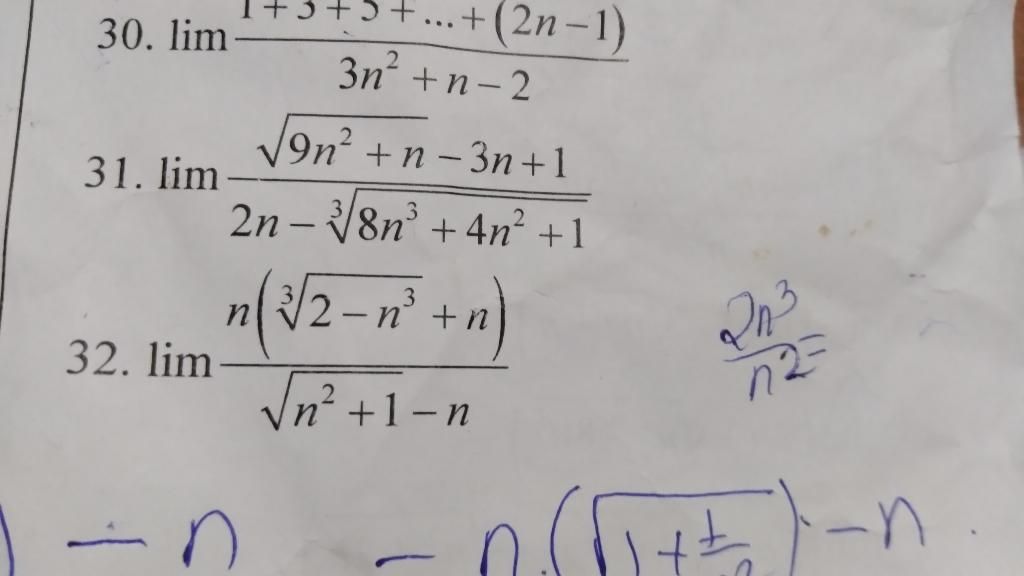 30. lim (1+3+5+...+(2n−1))/(3n²+n−2)
31. lim (√(9n²+n)−3n+1)/(2n−∛(8n³+4n²+1))
32. lim (n(∛(2−n³)+n))/(√(n²+1)−n)
2n³/n² =
) − n − n.(√1+1/) − n.